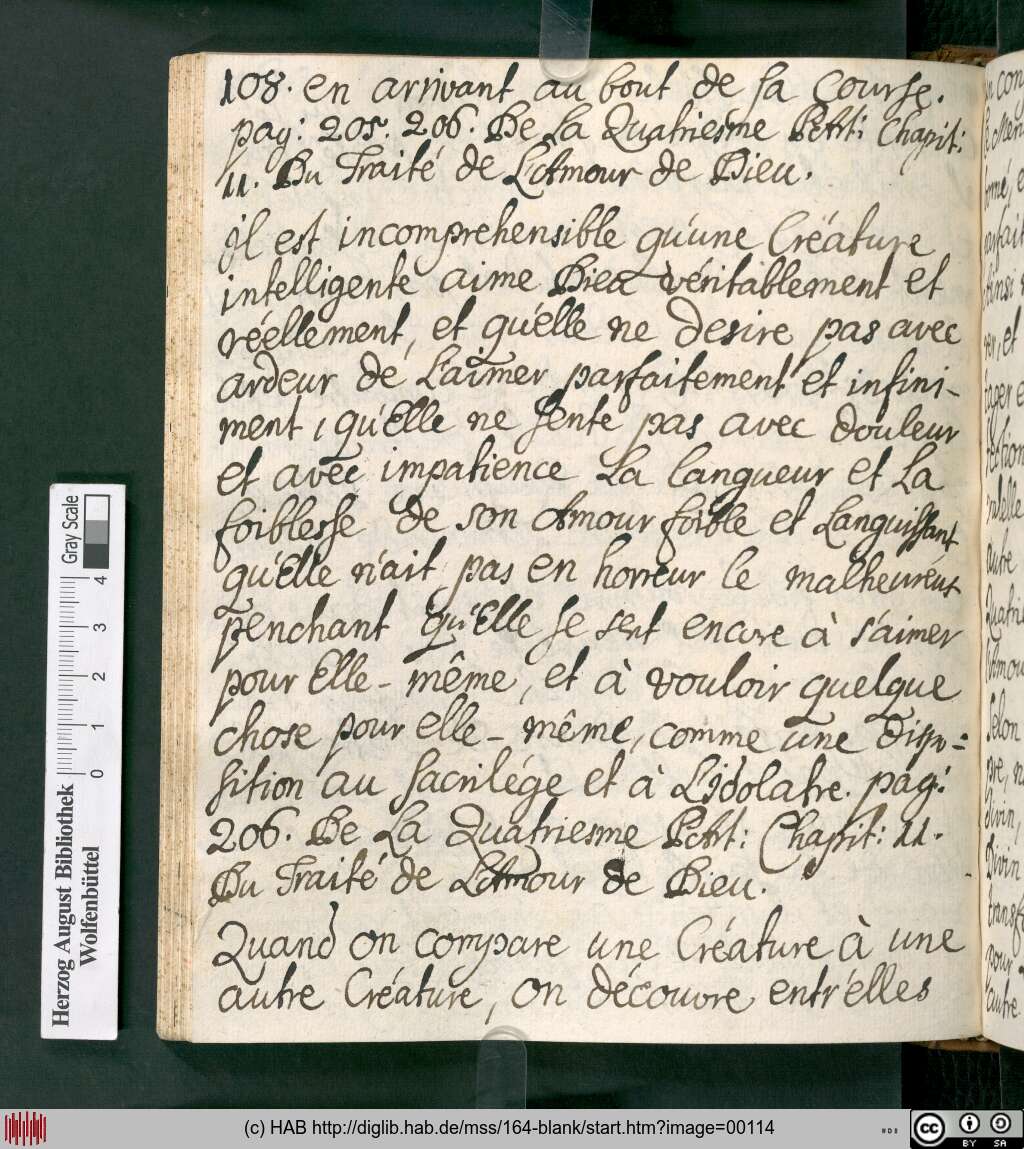 108. en arrivant au bout de sa Course.
pag: 205. 206. De La Quatriesme Petit: Chapit:
11. Du Traité de L'Amour de Dieu.
il est incomprehensible qu'une Créature
intelligente aime Dieu véritablement et
réellement, et qu'elle ne desire pas avec
ardeur de L'aimer parfaitement et infini-
ment, qu'Elle ne sente pas avec douleur
et avec impatience La langueur et La
foiblesse de son Amour foible et Languissant
qu'Elle n'ait pas en horreur le malheureux
penchant qu'Elle se sent encore à s'aimer
pour Elle-même, et à vouloir quelque
chose pour elle-même, comme une dispo=
sition au sacrilége et à L'idolatre. pag:
206. De La Quatriesme Petit: Chapit: 11.
Du Traité de L'Amour de Dieu.
Quand on compare une Créature à une
autre Créature, on découvre entr'elles
Herzog August Bibliothek
Wolfenbüttel
Gray Scale
0 1 2 3 4
(c) HAB http://diglib.hab.de/mss/164-blank/start.htm?image=00114
cc BY SA